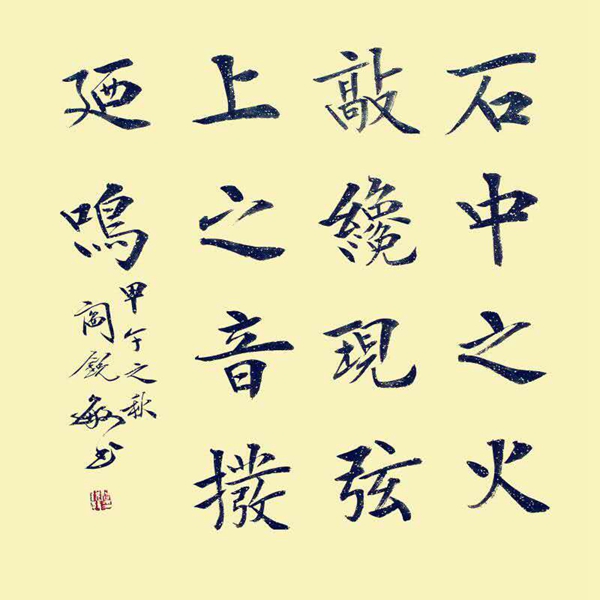 石中之火
敲纔現弦
上之音撥
廼鳴
甲午之秋
閻銳敏书